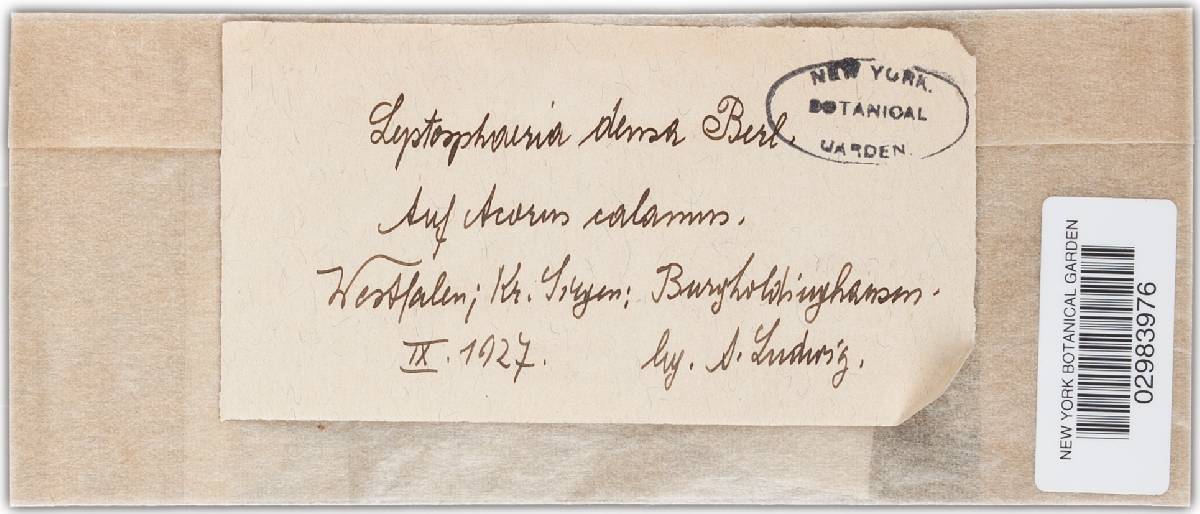 Leptosphaeria densa Berl.
NEW YORK.
BOTANICAL
GARDEN.
Auf Acorus calamus.
Westfalen; Kr. Siegen; Burgholdinghausen.
IX. 1927. leg. A. Ludwig.
NEW YORK BOTANICAL GARDEN
02983976